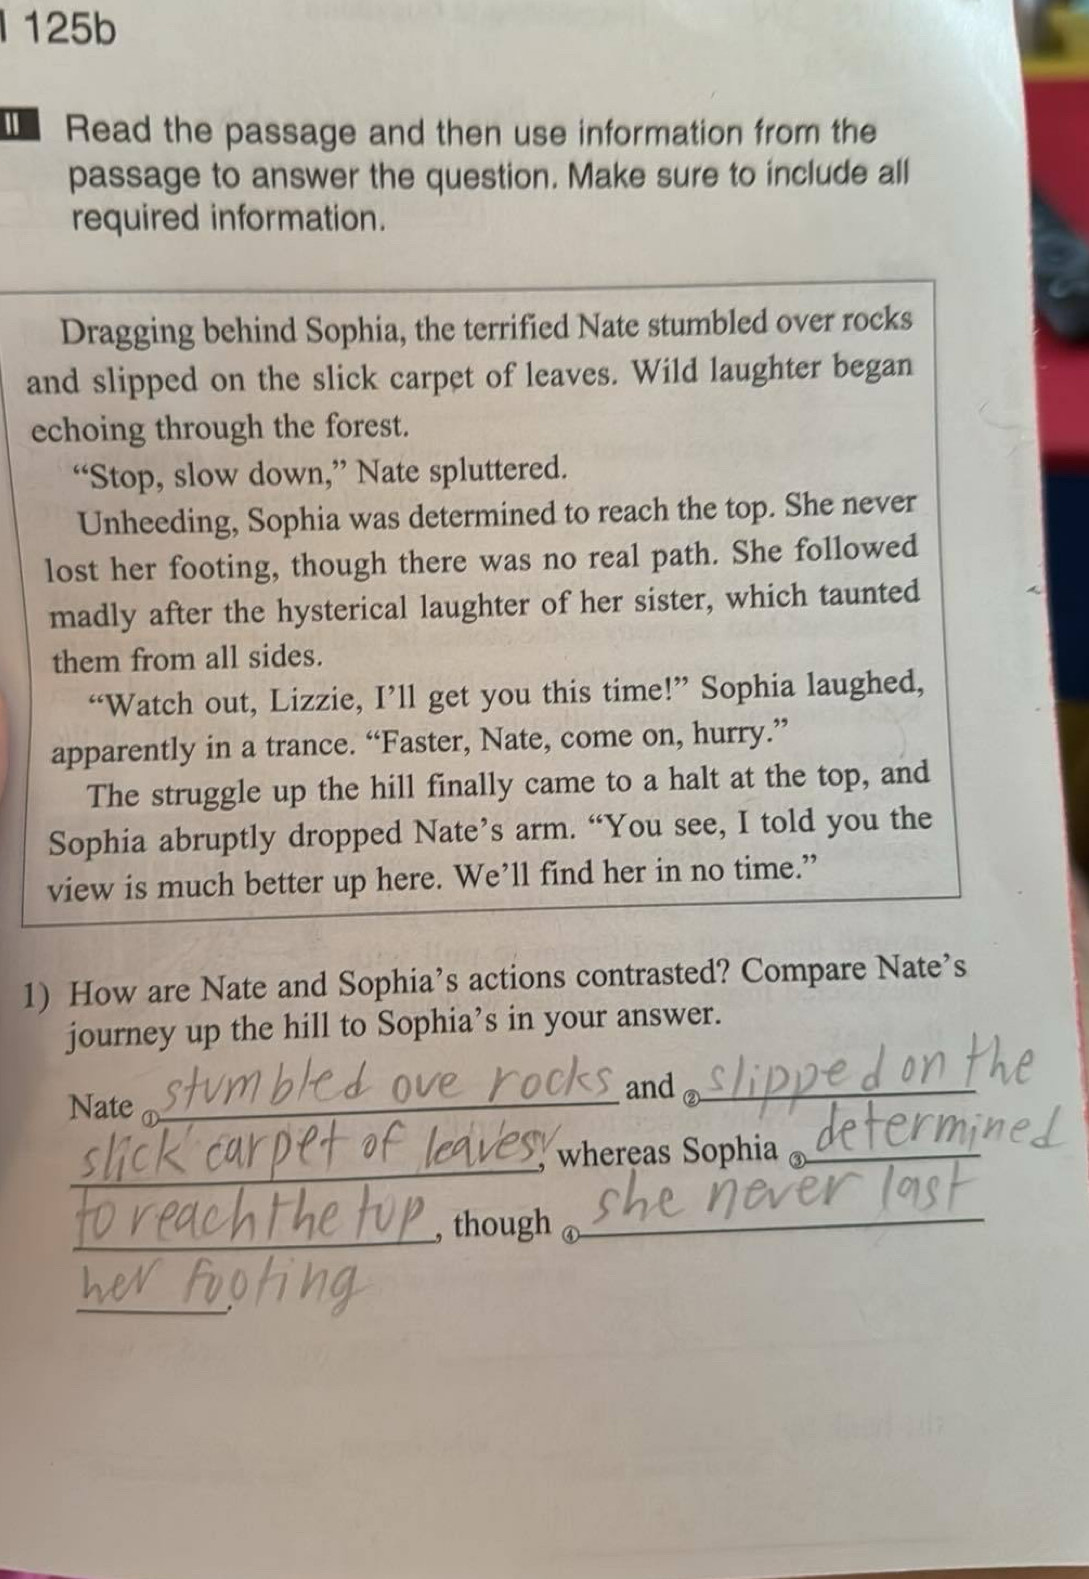 I 125b
II Read the passage and then use information from the
passage to answer the question. Make sure to include all
required information.
Dragging behind Sophia, the terrified Nate stumbled over rocks
and slipped on the slick carpet of leaves. Wild laughter began
echoing through the forest.
“Stop, slow down,” Nate spluttered.
Unheeding, Sophia was determined to reach the top. She never
lost her footing, though there was no real path. She followed
madly after the hysterical laughter of her sister, which taunted
them from all sides.
“Watch out, Lizzie, I’ll get you this time!” Sophia laughed,
apparently in a trance. “Faster, Nate, come on, hurry.”
The struggle up the hill finally came to a halt at the top, and
Sophia abruptly dropped Nate’s arm. “You see, I told you the
view is much better up here. We’ll find her in no time.”
1) How are Nate and Sophia’s actions contrasted? Compare Nate’s
journey up the hill to Sophia’s in your answer.
Nate ① stumbled ove rocks and ② slipped on the
slick carpet of leaves, whereas Sophia ③ determined
to reach the tup, though ④ she never last
her footing.